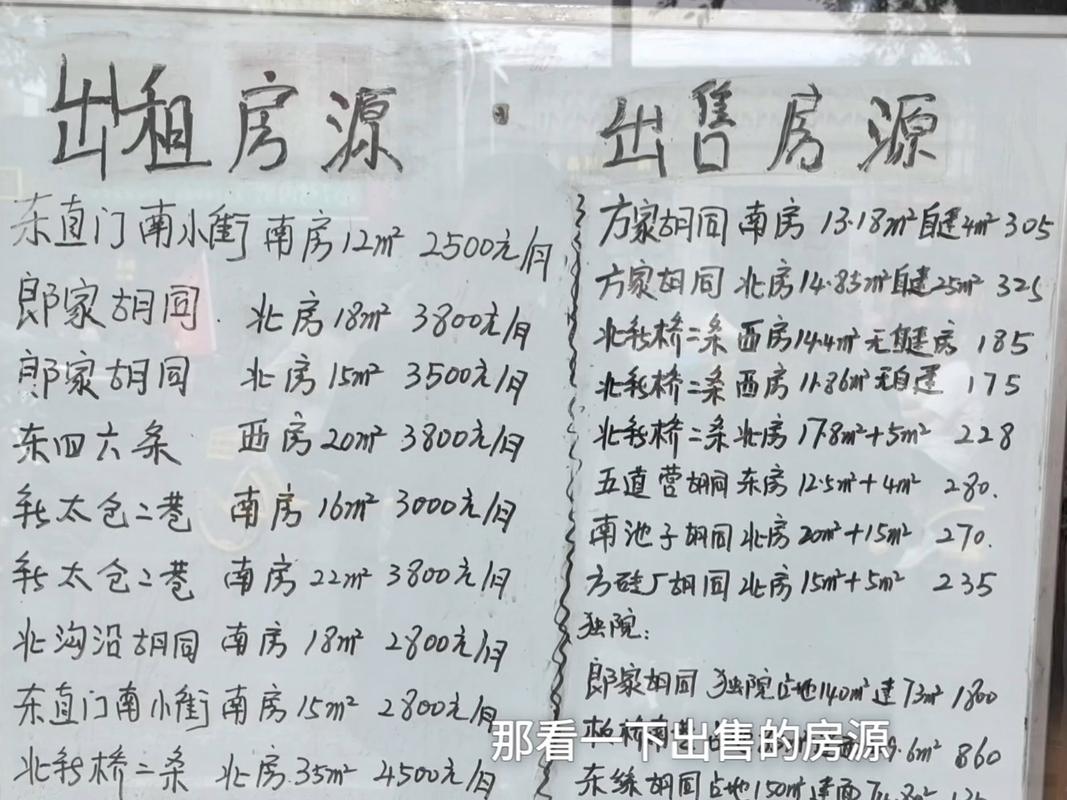 出租房源
东直门南小街 南房12m² 2500元/月
郎家胡同 北房18m² 3800元/月
郎家胡同 北房15m² 3500元/月
东四六条 西房20m² 3800元/月
新太仓二巷 南房16m² 3000元/月
新太仓二巷 南房22m² 3800元/月
北沟沿胡同 南房18m² 2800元/月
东直门南小街 南房15m² 2800元/月
北新桥二条 北房35m² 4500元/月
出售房源
方家胡同 南房 13.18m²自建4m² 305
方家胡同 北房14.85m²自建25m² 325
北新桥二条 西房14.4m² 无自建房 185
北新桥二条 西房11.86m²无自建 175
北新桥二条 北房17.8m²+5m² 228
五道营胡同 东房12.5m²+4m² 280.
南池子胡同 北房20m²+15m² 270.
方砖厂胡同 北房15m²+5m² 235
独院:
郎家胡同 独院占地140m²建73m² 1800
9.6m² 860
胡同占地150m²建面
那看一下出售的房源